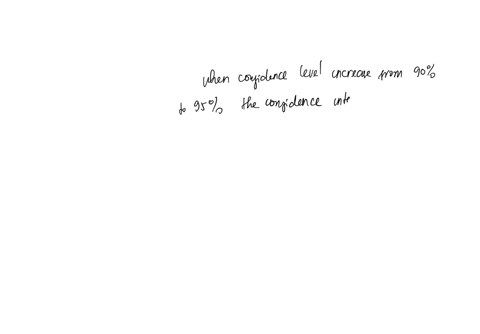 when confidence level increase from 90%
to 95% the confidence inte